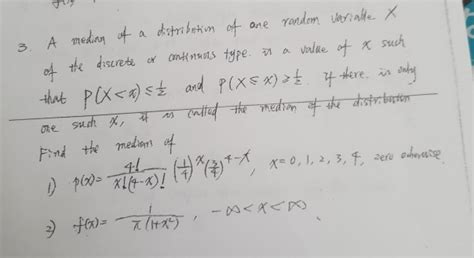 3. A median of a distribution of one random variable X
of the discrete or continuous type. is a value of x such
that P(X<x)≤1/2 and P(X≤x)≥1/2. if there is only
one such x, it is called the median of the distribution
Find the median of
1) p(x)= 4!/(x!(4-x)!) (1/4)^x (3/4)^{4-x}, x=0,1,2,3,4, zero otherwise.
2) f(x)= 1/(π(1+x²)), -∞<x<∞.